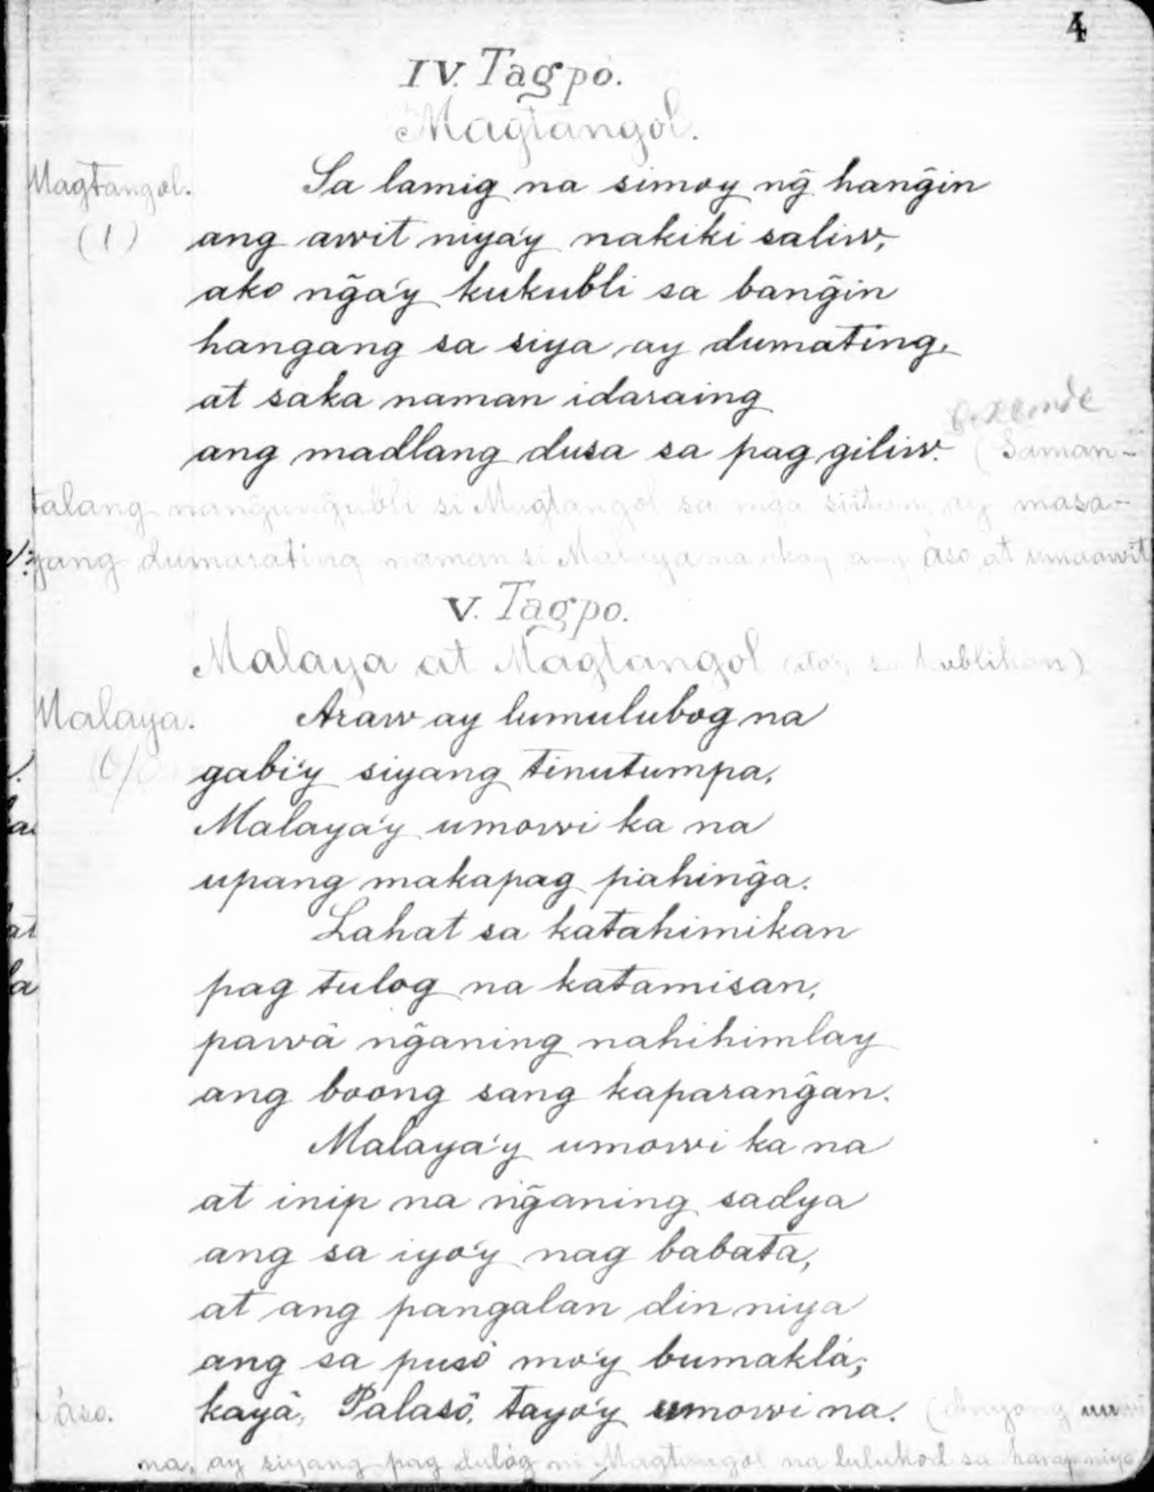 4
IV. Tagpó.
Magtangol.
Magtangol. Sa lamig na simoy ng̃ hang̃in
(1) ang awit niya'y nakiki saliw,
ako ng̃a'y kukubli sa bang̃in
hangang sa siya ay dumating,
at saka naman idaraing
ang madlang dusa sa pag giliw. (Saman-
talang nang̃ung̃ubli si Magtangol sa mga siitan, ay masa-
yang dumarating naman si Malaya na akay ang áso at umaawit
V. Tagpo.
Malaya at Magtangol (ito'y sa kublihan)
Malaya. Araw ay lumulubog na
gabi'y siyang tinutumpa,
Malaya'y umowi ka na
upang makapag pahing̃a.
Lahat sa katahimikan
pag tulog na katamisan,
pawâ ng̃aning nahihimlay
ang boong sang kaparang̃an.
Malaya'y umowi ka na
at inip na ng̃aning sadya
ang sa iyo'y nag babata,
at ang pangalan din niya
ang sa pusô mo'y bumaklá;
kayâ, Palasô, tayo'y umowi na. (Anyong
áso.
na, ay siyang pag dulóg ni Magtangol na luluhod sa harap niya